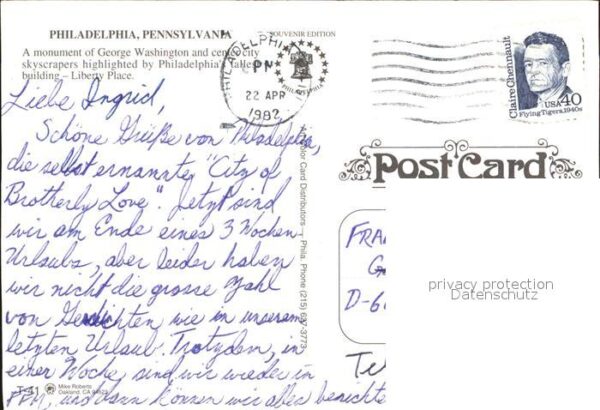 PHILADELPHIA, PENNSYLVANIA
SOUVENIR EDITION
A monument of George Washington and center city
skyscrapers highlighted by Philadelphia's tallest
building – Liberty Place.
PHILADELPHIA
PHILADELPHIA
PM
22 APR
Claire Chennault
USA 40
Flying Tigers, 1940s
Post Card
Liebe Ingrid,
Schöne Grüße von Philadelphia,
die selbst ernannte "City of
Brotherly Love". Jetzt sind
wir am Ende eines 3 Wochen
Urlaubs, aber leider haben
wir nicht die grosse Zahl
von wie in unserem
letzten Urlaub. Trotzdem, in
einer Woche sind wir wieder in
FFM, und dann können wir alles berichten
Card Distributors – Phila. Phone (215) 3773
FRA
G
D-6
Te
privacy protection
Datenschutz
T-41
Mike Roberts
Oakland, CA 94623